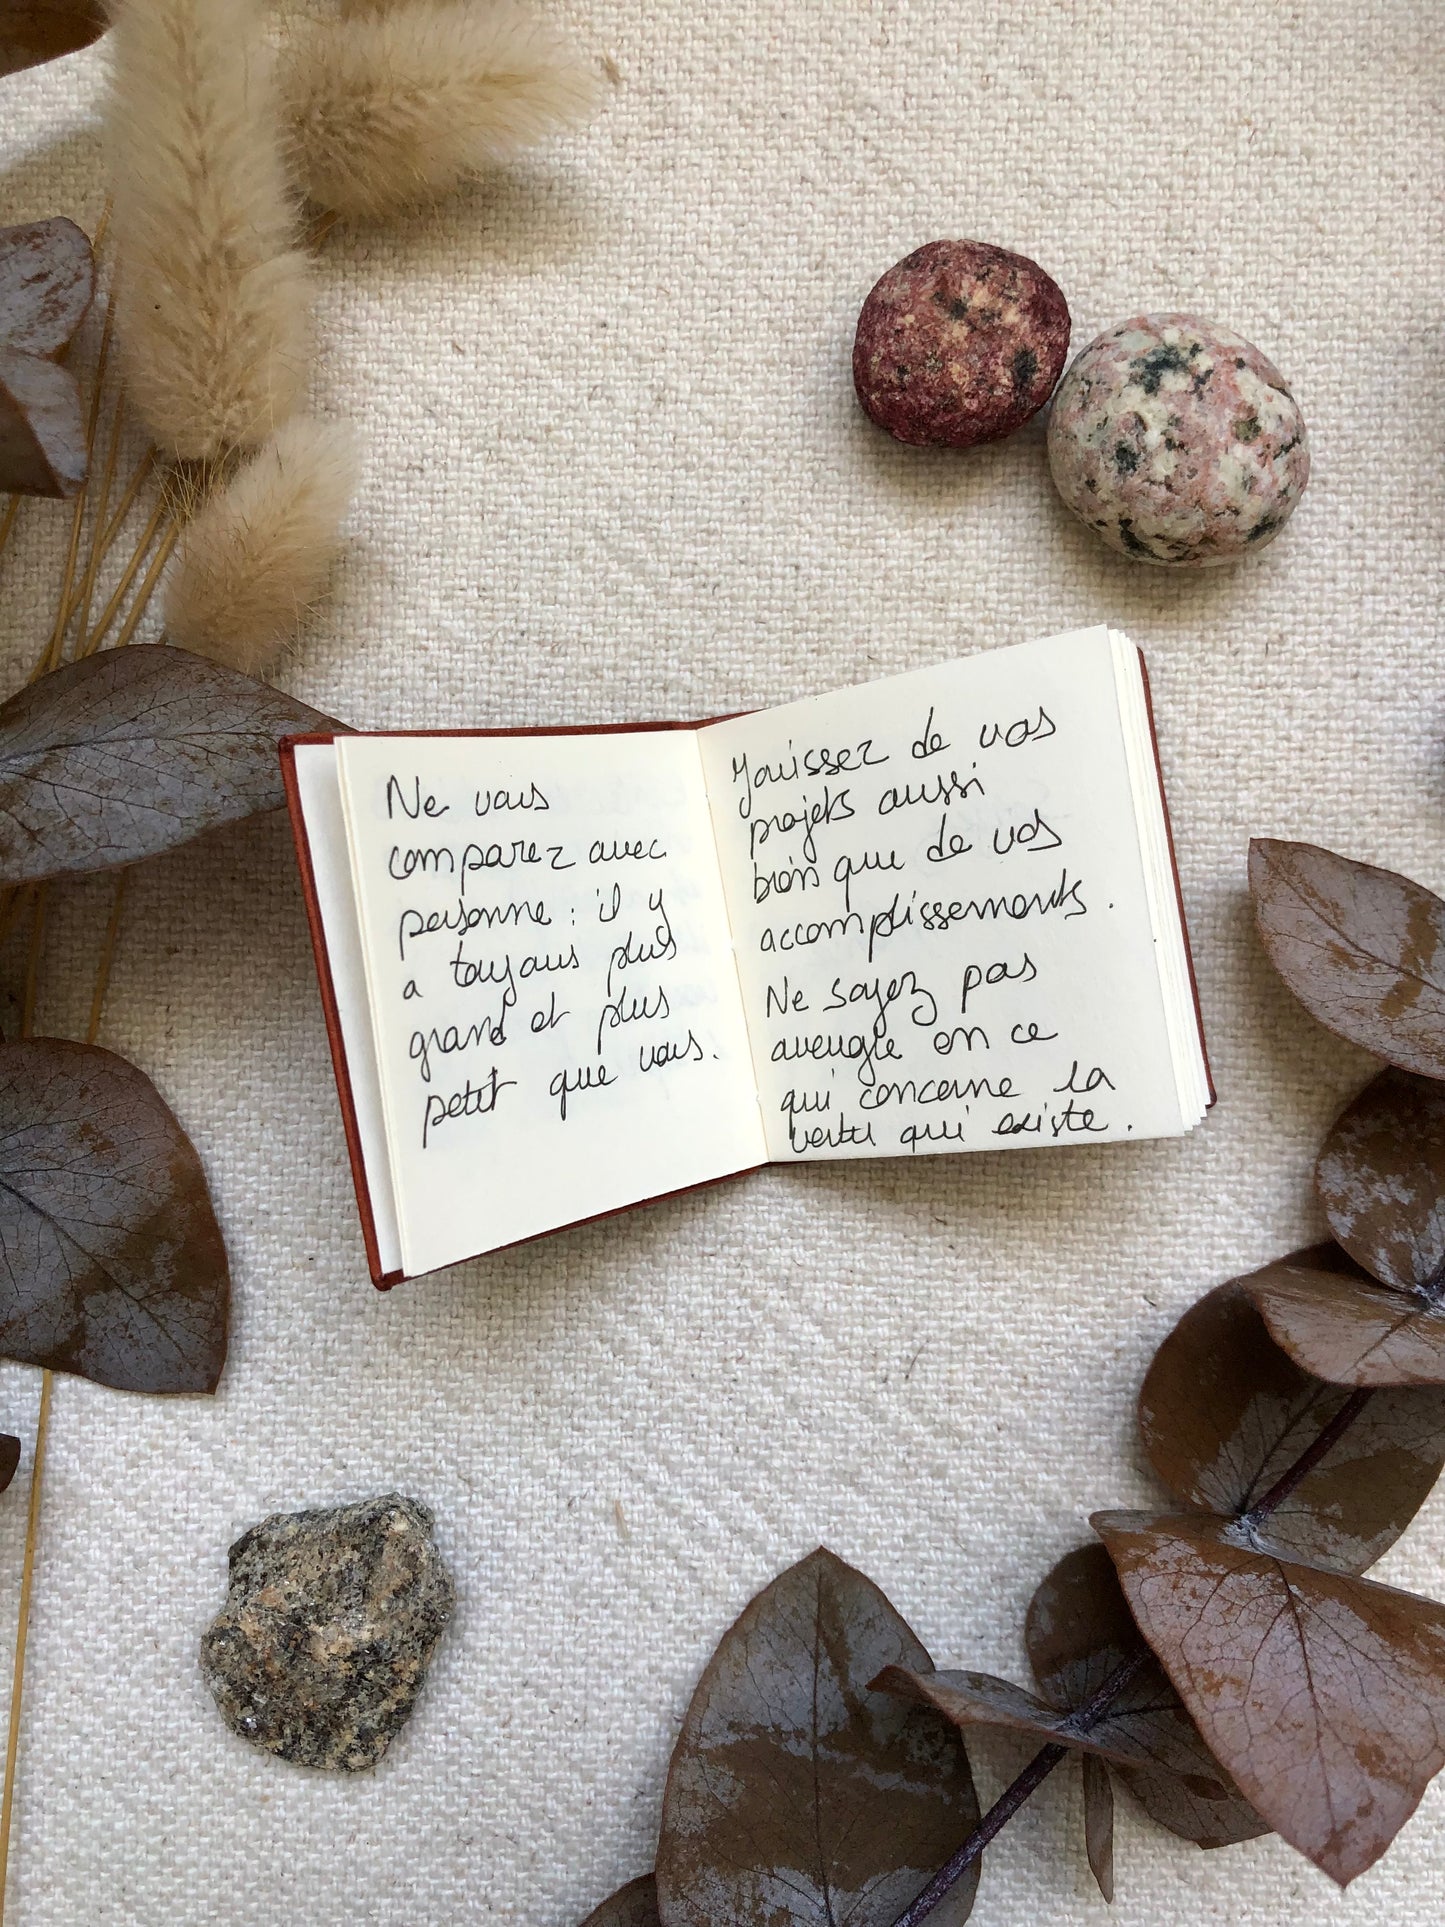 Ne vous
comparez avec
personne : il y
a toujours plus
grand et plus
petit que vous.
Jouissez de vos
projets aussi
bien que de vos
accomplissements.
Ne soyez pas
aveugle en ce
qui concerne la
vertu qui existe.